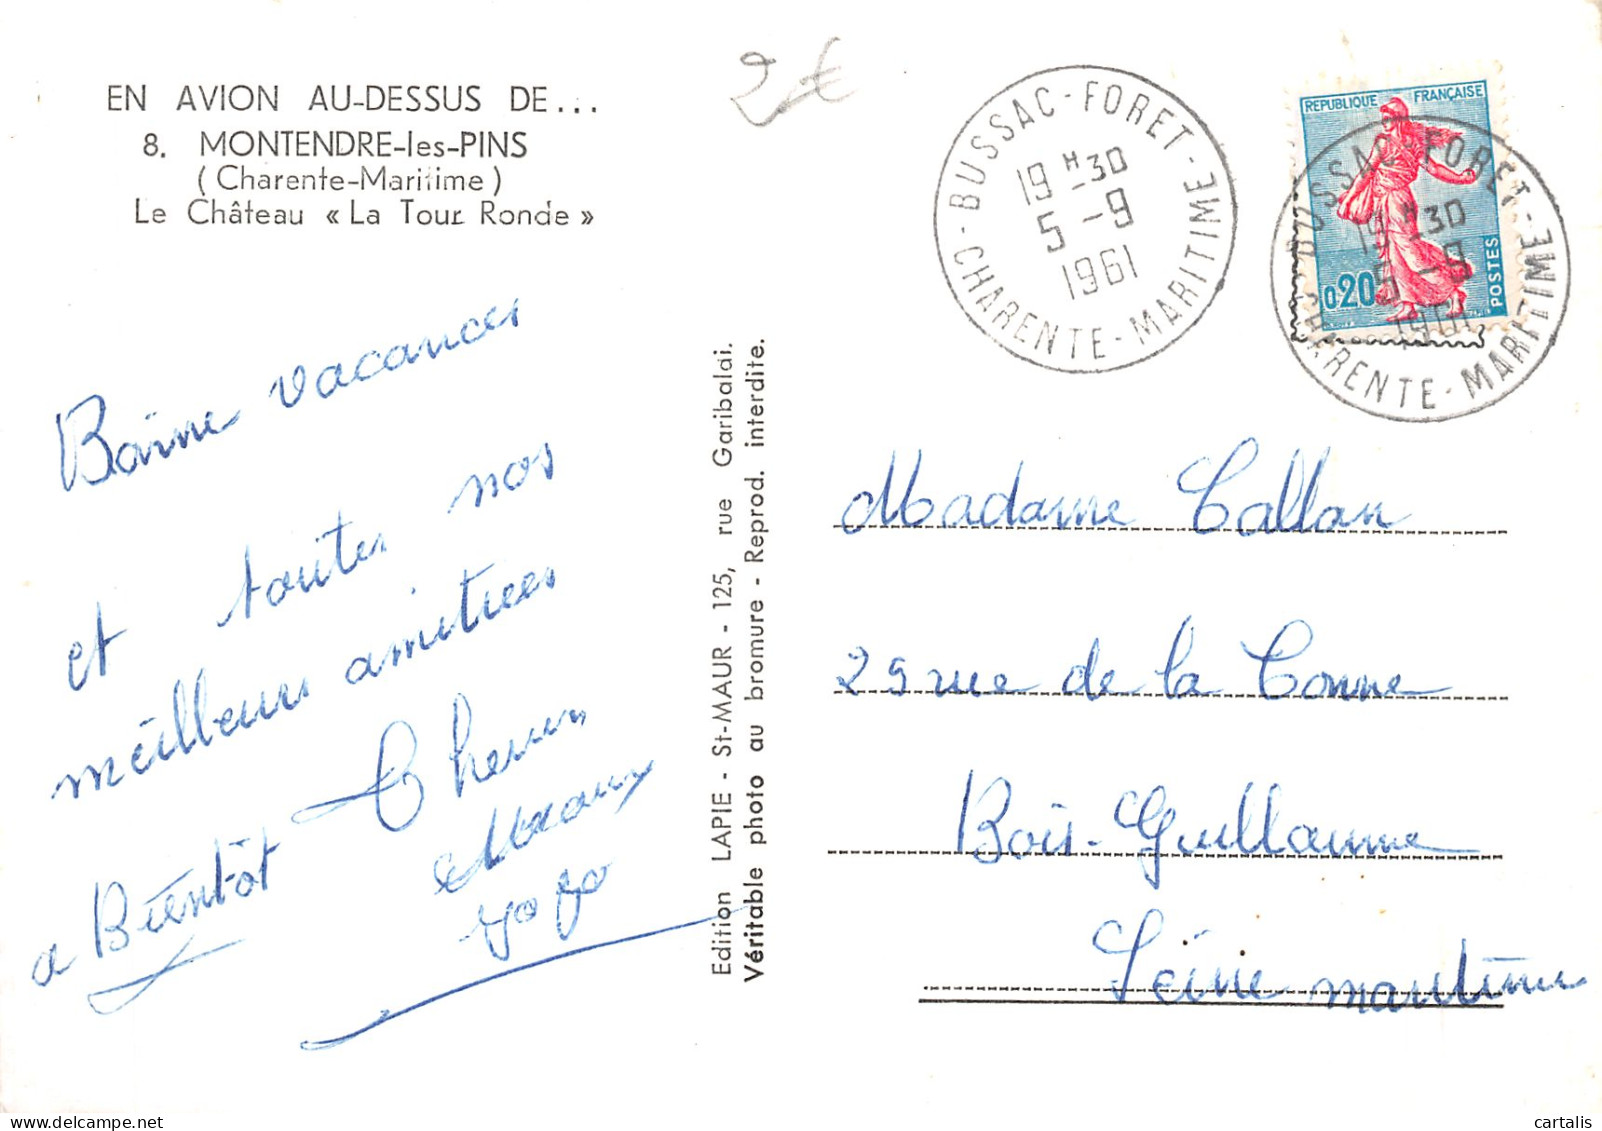 EN AVION AU-DESSUS DE...
8. MONTENDRE-les-PINS
(Charente-Maritime)
Le Château « La Tour Ronde »
2€
BUSSAC-FORET - CHARENTE-MARITIME
19H30
5-9
1961
REPUBLIQUE FRANÇAISE
0,20
POSTES
BUSSAC-FORET - CHARENTE-MARITIME
19H30
5-9
1961
Bonne vacances
et toutes nos
meilleurs amitiees
a Bientôt
yoyo
Edition LAPIE - St-MAUR - 125, rue Garibaldi.
Véritable photo au bromure - Reprod. interdite.
Madame Callan
25 rue de la
Bois-Guillaume
Seine maritime
cartalis